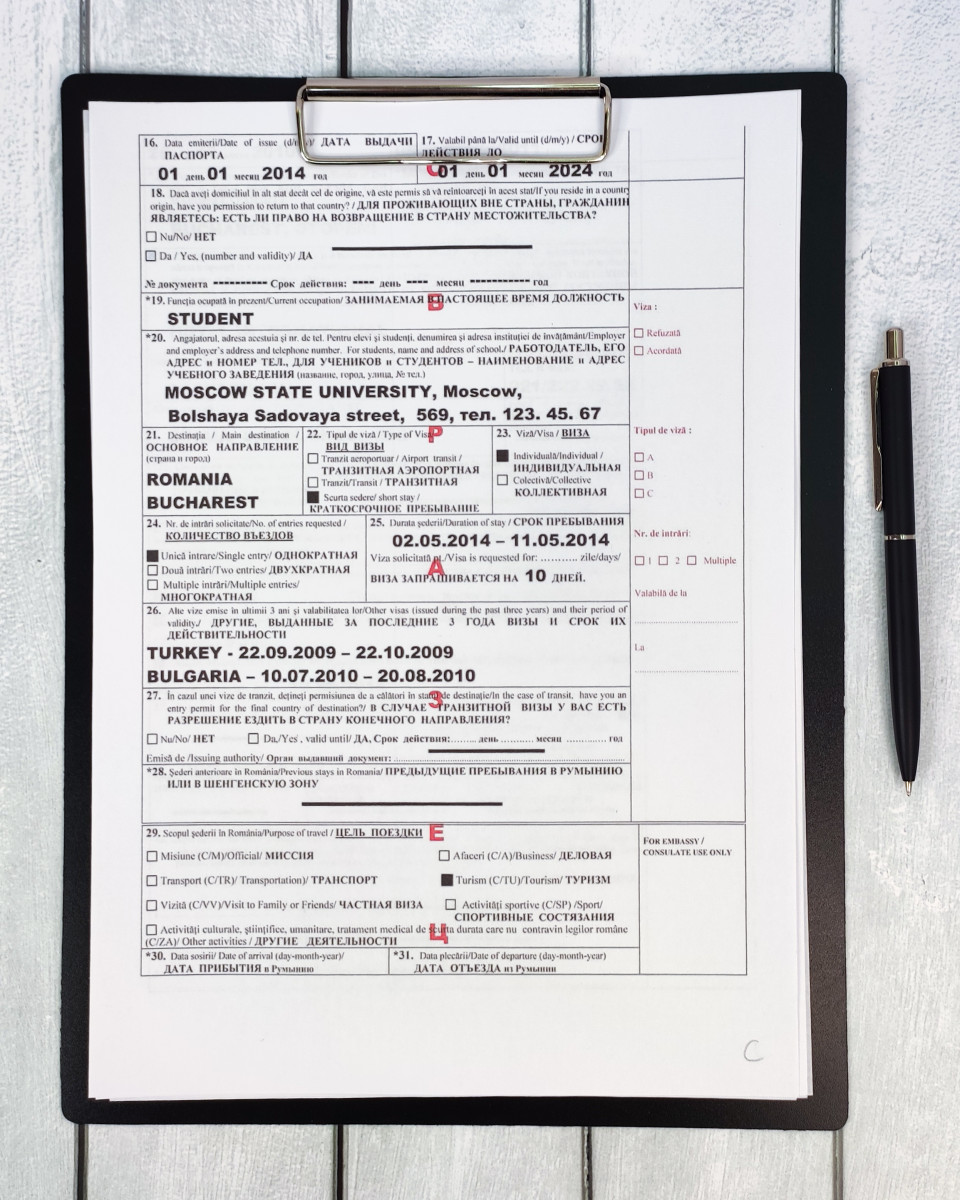 16. Data emiterii/Date of issue (d/ ДАТА ВЫДАЧИ
ПАСПОРТА
01 день 01 месяц 2014 год
17. Valabil până la/Valid until (d/m/y) / СРОК
ДЕЙСТВИЯ ДО
01 день 01 месяц 2024 год
18. Dacă aveţi domiciliul în alt stat decât cel de origine, vă este permis să vă reîntoarceţi în acest stat/If you reside in a country
origin, have you permission to return to that country? / ДЛЯ ПРОЖИВАЮЩИХ ВНЕ СТРАНЫ, ГРАЖДАНИН
ЯВЛЯЕТЕСЬ: ЕСТЬ ЛИ ПРАВО НА ВОЗВРАЩЕНИЕ В СТРАНУ МЕСТОЖИТЕЛЬСТВА?
Nu/No/ НЕТ
Da / Yes, (number and validity)/ ДА
№ документа ---------- Срок действия: ---- день ---- месяц ----------- год
*19. Funcţia ocupată în prezent/Current occupation/ ЗАНИМАЕМАЯ В НАСТОЯЩЕЕ ВРЕМЯ ДОЛЖНОСТЬ
STUDENT
*20. Angajatorul, adresa acestuia şi nr. de tel. Pentru elevi şi studenţi, denumirea şi adresa instituţiei de învăţământ/Employer
and employer's address and telephone number. For students, name and address of school./ РАБОТОДАТЕЛЬ, ЕГО
АДРЕС и НОМЕР ТЕЛ., ДЛЯ УЧЕНИКОВ и СТУДЕНТОВ – НАИМЕНОВАНИЕ и АДРЕС
УЧЕБНОГО ЗАВЕДЕНИЯ (название, город, улица, № тел.)
MOSCOW STATE UNIVERSITY, Moscow,
Bolshaya Sadovaya street, 569, тел. 123. 45. 67
21. Destinaţia / Main destination /
ОСНОВНОЕ НАПРАВЛЕНИЕ
(страна и город)
ROMANIA
BUCHAREST
22. Tipul de viză / Type of Visa/
ВИД ВИЗЫ
Tranzit aeroportuar / Airport transit /
ТРАНЗИТНАЯ АЭРОПОРТНАЯ
Tranzit/Transit / ТРАНЗИТНАЯ
Scurta sedere/ short stay /
КРАТКОСРОЧНОЕ ПРЕБЫВАНИЕ
23. Viză/Visa / ВИЗА
Individuală/Individual /
ИНДИВИДУАЛЬНАЯ
Colectivă/Collective
КОЛЛЕКТИВНАЯ
24. Nr. de intrări solicitate/No. of entries requested /
КОЛИЧЕСТВО ВЪЕЗДОВ
Unică intrare/Single entry/ ОДНОКРАТНАЯ
Două intrări/Two entries/ ДВУХКРАТНАЯ
Multiple intrări/Multiple entries/
МНОГОКРАТНАЯ
25. Durata şederii/Duration of stay / СРОК ПРЕБЫВАНИЯ
02.05.2014 – 11.05.2014
Viza solicitată pt./Visa is requested for: .......... zile/days/
ВИЗА ЗАПРАШИВАЕТСЯ НА 10 ДНЕЙ.
26. Alte vize emise în ultimii 3 ani şi valabilitatea lor/Other visas (issued during the past three years) and their period of
validity./ ДРУГИЕ, ВЫДАННЫЕ ЗА ПОСЛЕДНИЕ 3 ГОДА ВИЗЫ И СРОК ИХ
ДЕЙСТВИТЕЛЬНОСТИ
TURKEY - 22.09.2009 – 22.10.2009
BULGARIA – 10.07.2010 – 20.08.2010
27. În cazul unei vize de tranzit, deţineţi permisiunea de a călători în statul de destinaţie/In the case of transit, have you an
entry permit for the final country of destination?/ В СЛУЧАЕ ТРАНЗИТНОЙ ВИЗЫ У ВАС ЕСТЬ
РАЗРЕШЕНИЕ ЕЗДИТЬ В СТРАНУ КОНЕЧНОГО НАПРАВЛЕНИЯ?
Nu/No/ НЕТ Da./Yes , valid until/ ДА, Срок действия:......... день .......... месяц ............ год
Emisă de/Issuing authority/ Орган выдавший документ:
*28. Şederi anterioare în România/Previous stays in Romania/ ПРЕДЫДУЩИЕ ПРЕБЫВАНИЯ В РУМЫНИЮ
ИЛИ В ШЕНГЕНСКУЮ ЗОНУ
29. Scopul şederii în România/Purpose of travel / ЦЕЛЬ ПОЕЗДКИ
Misiune (C/M)/Official/ МИССИЯ
Afaceri (C/A)/Business/ ДЕЛОВАЯ
Transport (C/TR)/ Transportation)/ ТРАНСПОРТ
Turism (C/TU)/Tourism/ ТУРИЗМ
Vizită (C/VV)/Visit to Family or Friends/ ЧАСТНАЯ ВИЗА
Activităţi sportive (C/SP) /Sport/
СПОРТИВНЫЕ СОСТЯЗАНИЯ
Activităţi culturale, ştiinţifice, umanitare, tratament medical de scurta durata care nu contravin legilor române
(C/ZA)/ Other activities / ДРУГИЕ ДЕЯТЕЛЬНОСТИ
*30. Data sosirii/ Date of arrival (day-month-year)/
ДАТА ПРИБЫТИЯ в Румынию
*31. Data plecării/Date of departure (day-month-year)
ДАТА ОТЪЕЗДА из Румынии
Viza :
Refuzată
Acordată
Tipul de viză :
A
B
C
Nr. de intrări:
1 2 Multiple
Valabilă de la
La
FOR EMBASSY /
CONSULATE USE ONLY
О
В
Р
А
З
Е
Ц
C